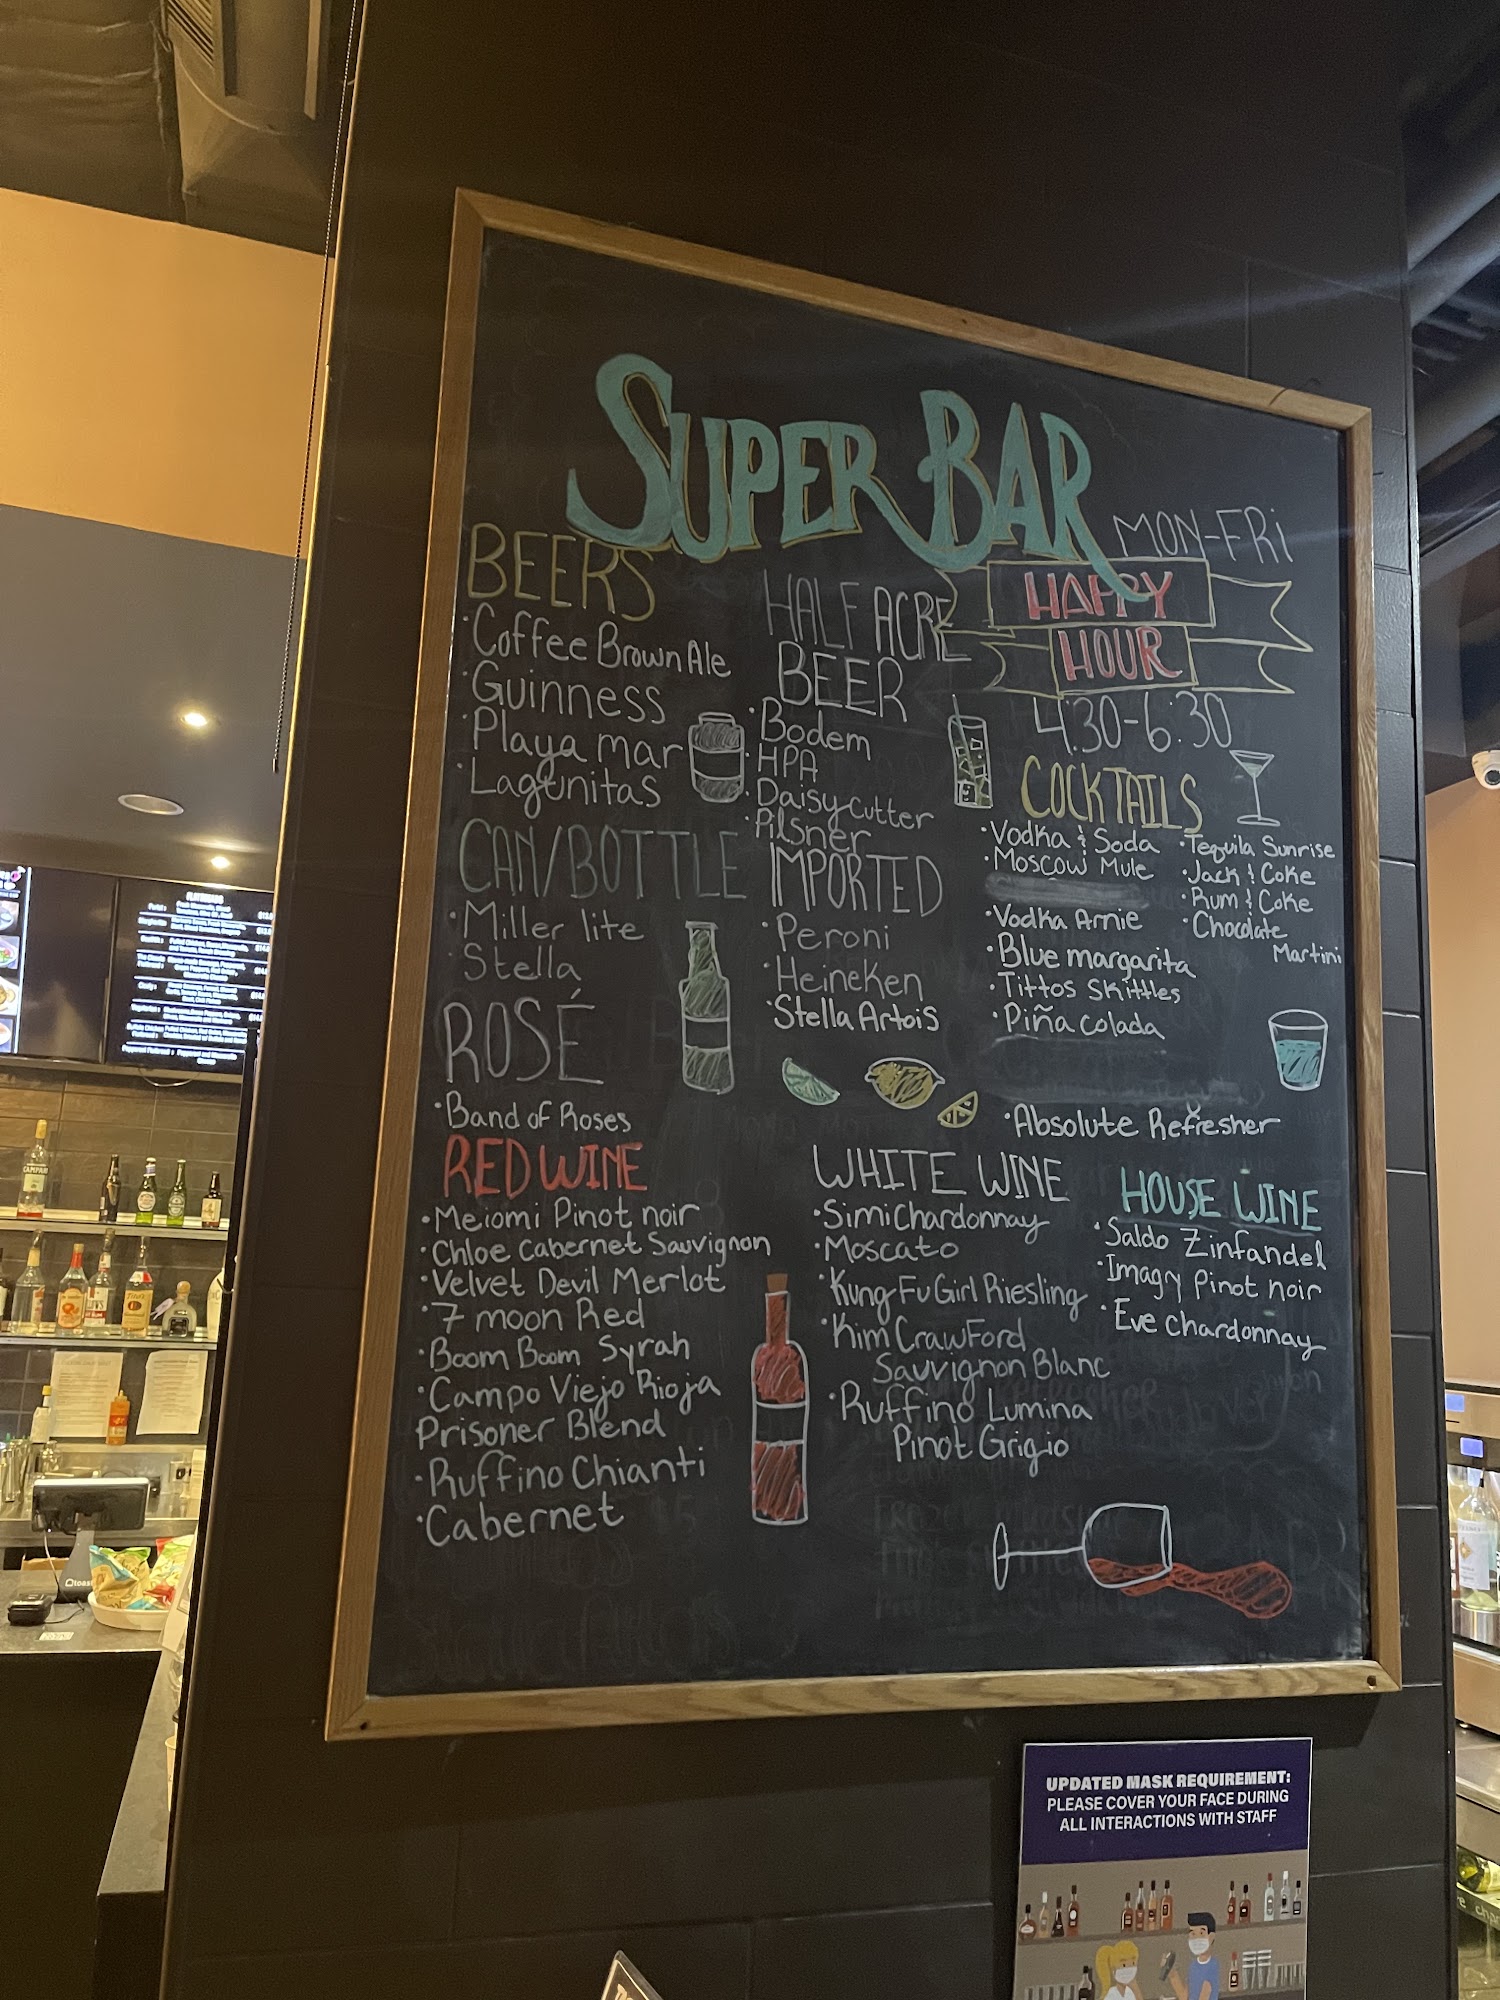 SUPER BAR
BEERS
·Coffee Brown Ale
·Guinness
·Playa mar
·Lagunitas
CAN/BOTTLE
·Miller lite
·Stella
ROSÉ
·Band of Roses
RED WINE
·Meiomi Pinot noir
·Chloe Cabernet Sauvignon
·Velvet Devil Merlot
·7 moon Red
·Boom Boom Syrah
·Campo Viejo Rioja
Prisoner Blend
·Ruffino Chianti
·Cabernet
HALF ACRE
BEER
·Bodem
·HPA
·Daisy cutter
·Pilsner
IMPORTED
·Peroni
·Heineken
·Stella Artois
MON-FRi
HAPPY
HOUR
4:30-6:30
COCKTAILS
·Vodka & Soda
·Moscow Mule
·Vodka Arnie
·Blue margarita
·Tittos Skittles
·Piña colada
·Tequila Sunrise
·Jack & Coke
·Rum & Coke
·Chocolate
Martini
·Absolute Refresher
WHITE WINE
·Simi Chardonnay
·Moscato
·Kung Fu Girl Riesling
·Kim CrawFord
Sauvignon Blanc
·Ruffino Lumina
Pinot Grigio
HOUSE WINE
·Saldo Zinfandel
·Imagry Pinot noir
·Eve chardonnay
UPDATED MASK REQUIREMENT:
PLEASE COVER YOUR FACE DURING
ALL INTERACTIONS WITH STAFF
FLATBREADS
CAMPARI
toast